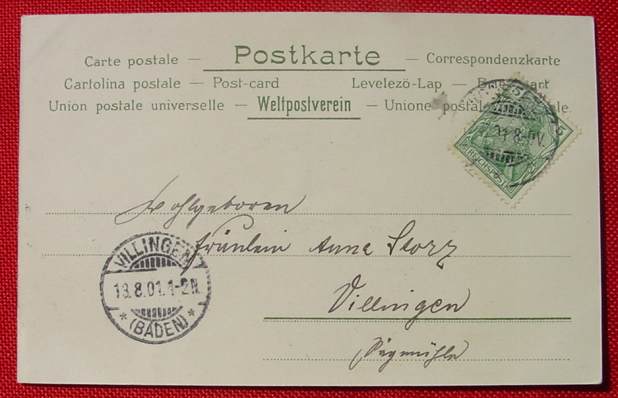 Carte postale — Postkarte — Correspondenzkarte
Cartolina postale — Post-card Levelező-Lap —
Union postale universelle — Weltpostverein — Unione postale
Wohlgeboren
Fräulein Anna Storz
Villingen
Sägmühle
VILLINGEN
8.01.1-2N.
* (BADEN) *